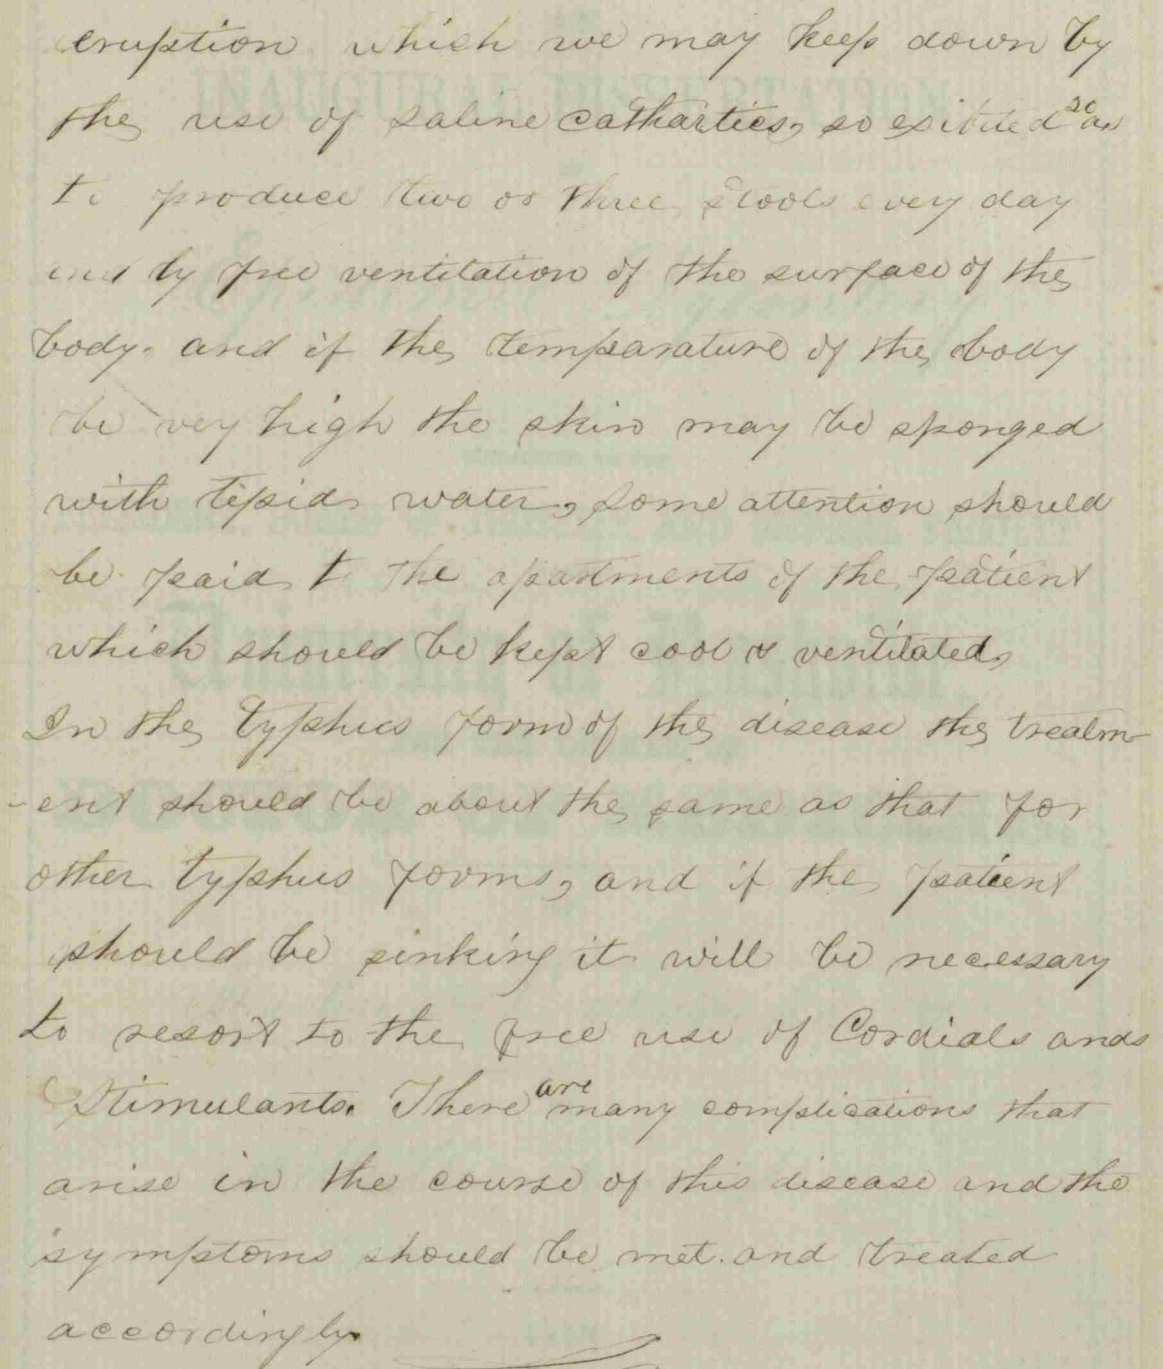 eruption which we may keep down by
the use of saline cathartics, so exibited so as
to produce two or three stools every day
and by free ventilation of the surface of the
body. and if the temparature of the body
be very high the skin may be sponged
with tepid water, some attention should
be paid to the apartments of the patient
which should be kept cool & ventilated,
In the typhus form of the disease the treatm-
-ent should be about the same as that for
other typhus forms, and if the patient
should be sinking it will be necessary
to resort to the free use of Cordials and
Stimulants. There are many complications that
arise in the course of this disease and the
symptoms should be met. and treated
accordingly.